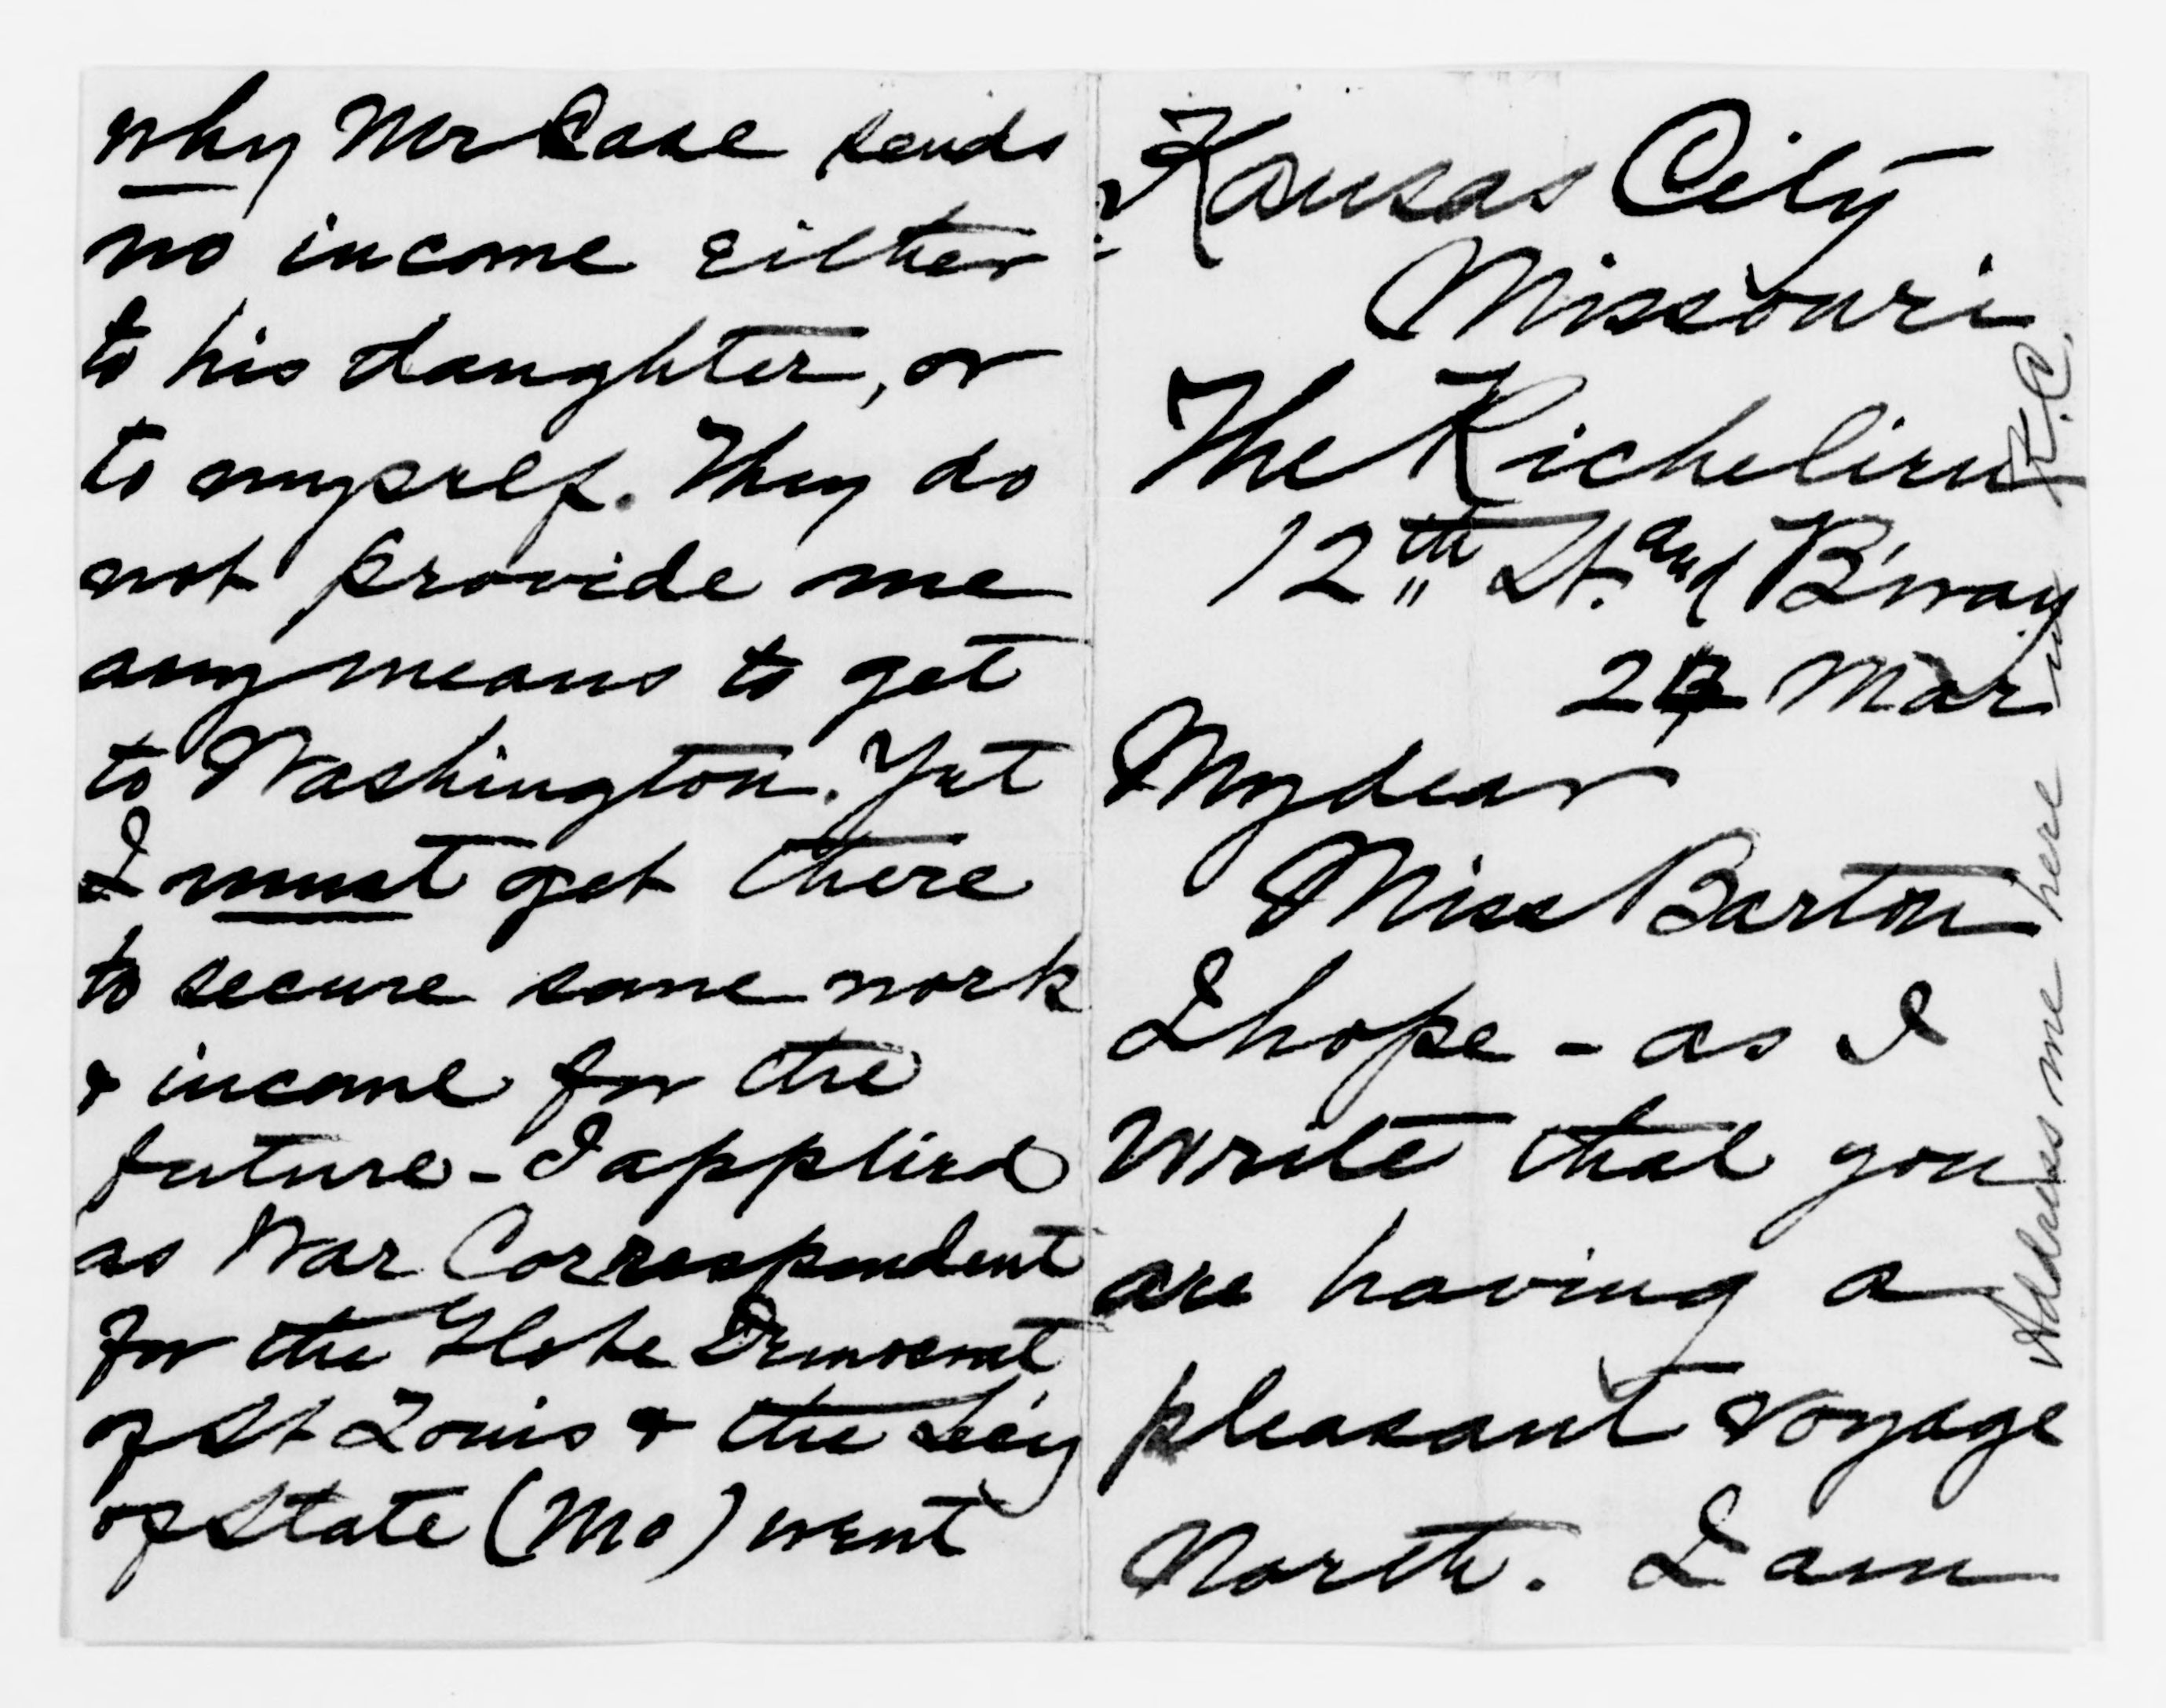 Kansas City
Missouri
The Richelieu
12th St. and B'way
Mar
My dear
Miss Barton
I hope - as I
write that you
are having a
pleasant voyage
North. I am
Address me here in K.C.
why Mr Case sends
no income either
to his daughter, or
to myself. They do
not provide me
any means to get
to Washington. Yet
I must get there
to secure some work
& income for the
future - I applied
as War Correspondent
for the Globe Democrat
of St Louis & the Sec'y
of State (Mo) went